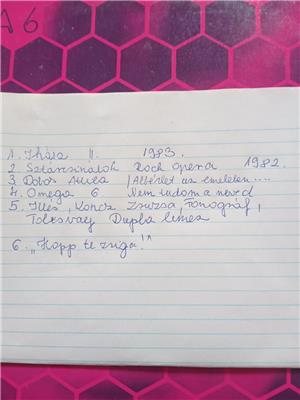 A 6
1. Ihász II. 1983.
2. Sztárcsinálók Rock Opera 1982.
3. Dobos Attila /Albérlet az emeleten ....
4. Omega 6 Nem tudom a neved
5. Illés, Koncz Zsuzsa, Fonográf,
Tolcsvay Dupla lemez
6. „Hopp te zsiga!"